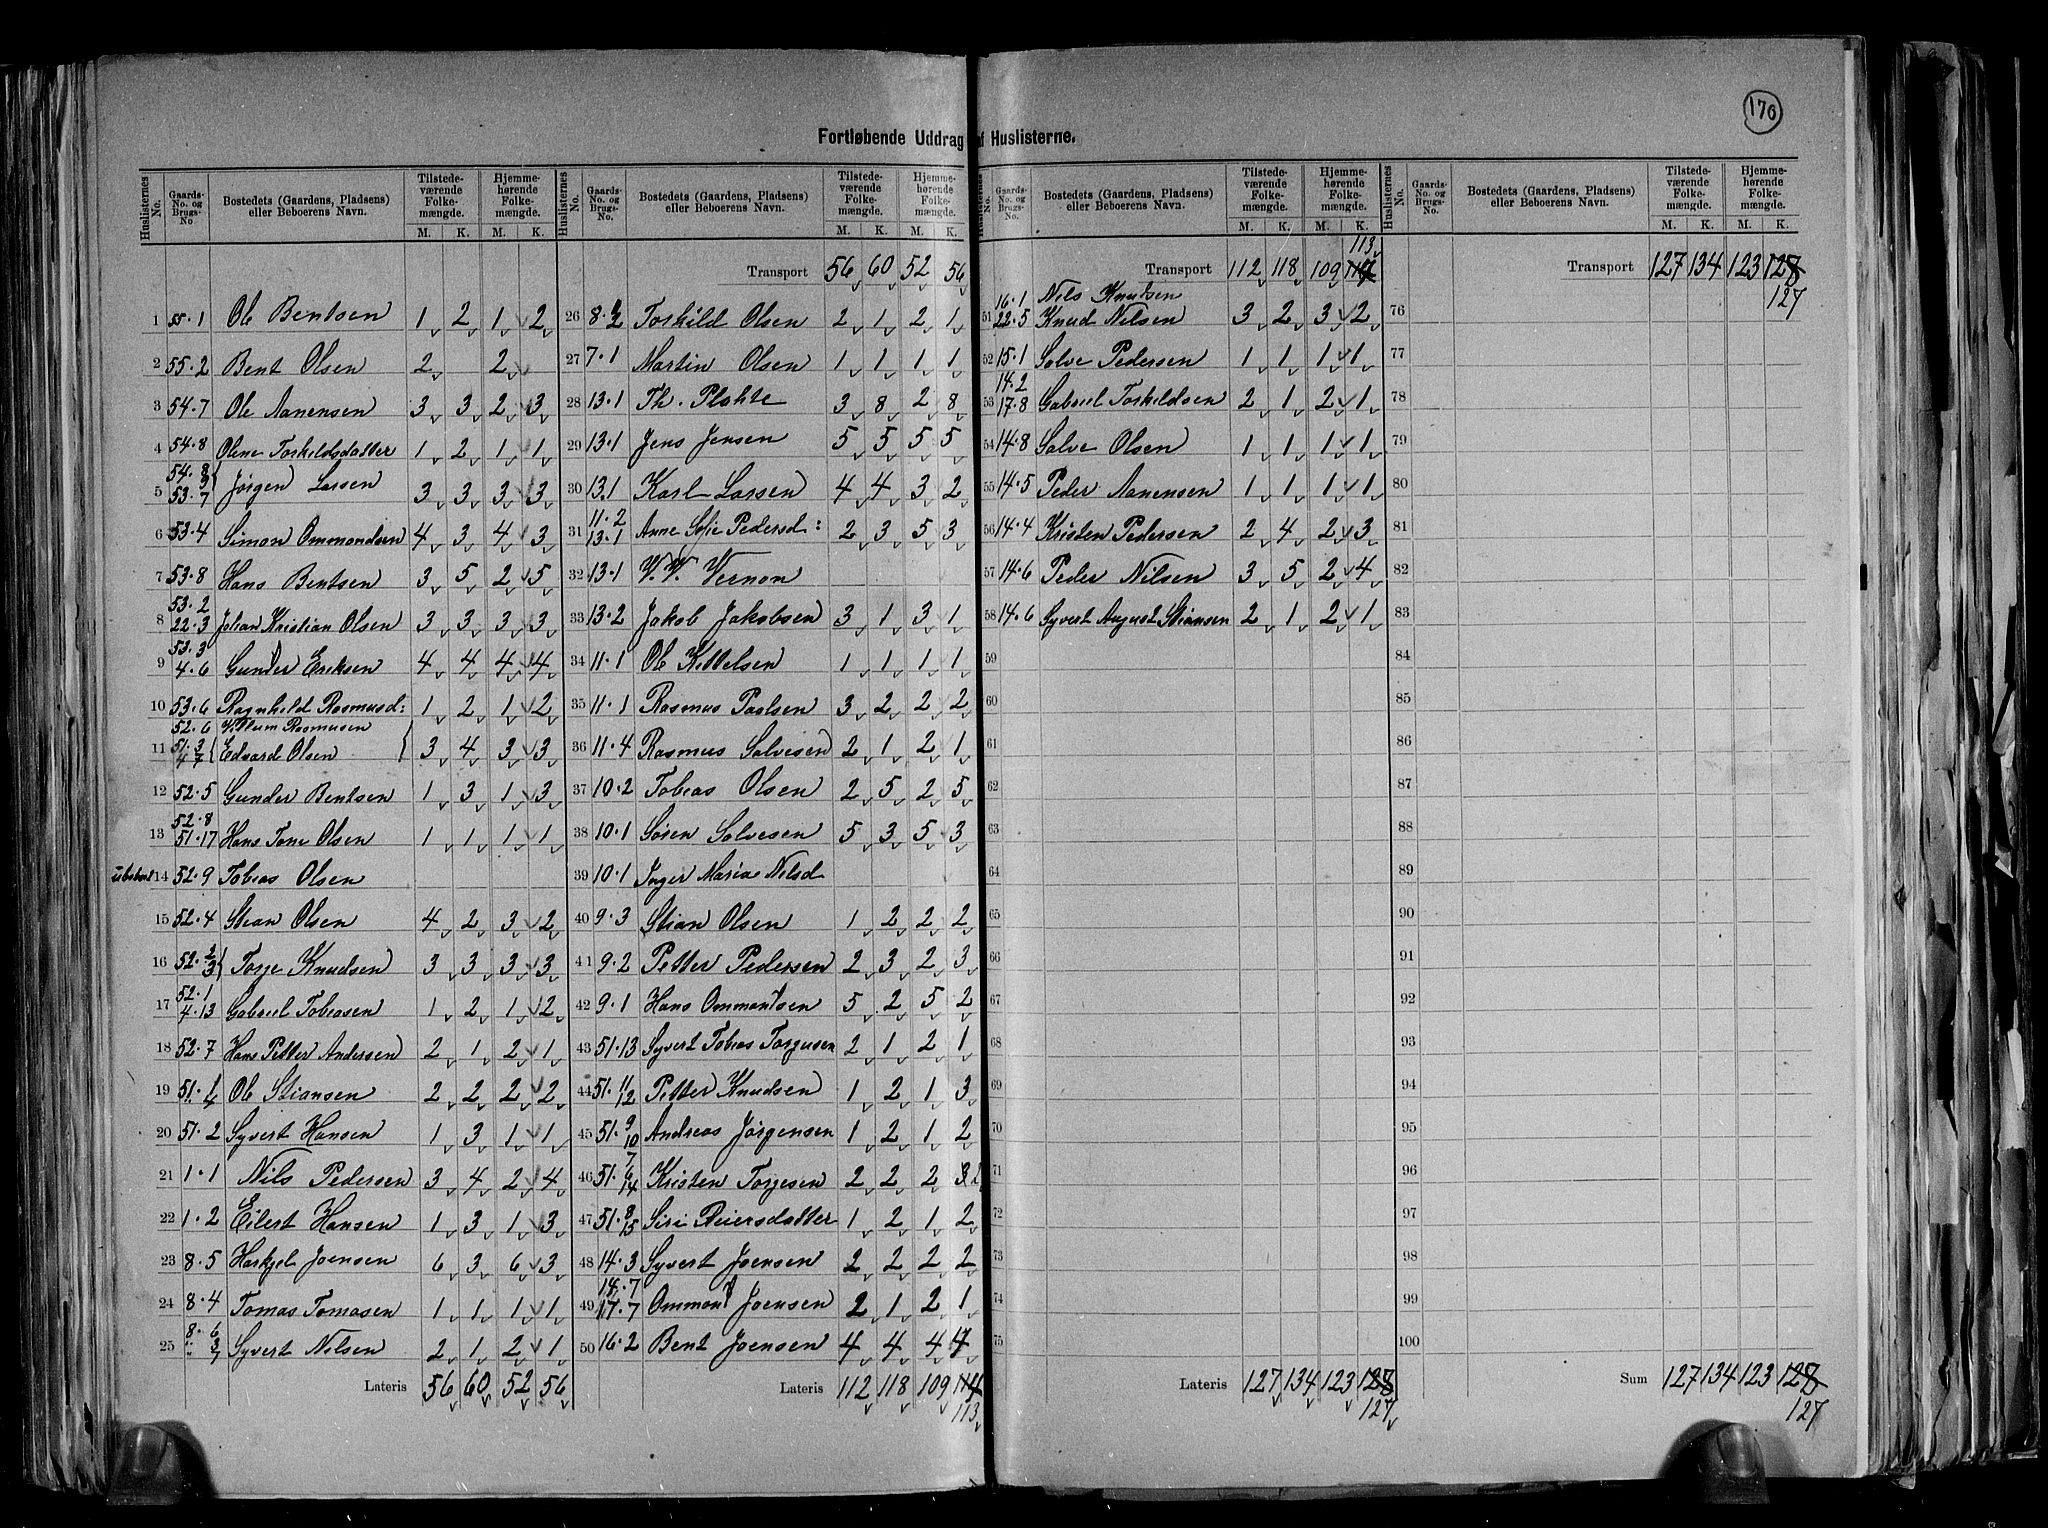 170
Fortløbende Uddrag af Huslisterne.
Huslisternes No. | Gaards-No. og Brugs-No | Bostedets (Gaardens, Pladsens) eller Beboerens Navn. | Tilstedeværende Folkemængde. M. K. | Hjemmehørende Folkemængde. M. K.
1 55.1 Ole Bentsen 1 2 1 2
2 55.2 Bent Olsen 2 2
3 54.7 Ole Aanensen 3 3 2 3
4 54.8 Olene Torkildsdatter 1 2 1 1
5 53.7 Jørgen Larsen 3 3 3 3
6 53.4 Simon Ommundsen 4 3 4 3
7 53.8 Hans Bentsen 3 5 2 5
8 53.2 22.3 Johan Kristian Olsen 3 3 3 3
9 53.3 4.6 Gunder Eriksen 4 4 4 4
10 53.6 Ragnhild Rasmusd: 1 2 1 2
52.6 Villum Rasmusen
11 51.3 4.7 Edvard Olsen 3 4 3 3
12 52.5 Gunder Bentsen 1 3 1 3
13 52.8 51.17 Hans Tom Olsen 1 1 1 1
ubeboet 14 52.9 Tobias Olsen
15 52.4 Stian Olsen 4 2 3 2
16 52.2 3 Torje Knudsen 3 3 3 3
17 52.1 4.13 Gabriel Tobiasen 1 2 1 2
18 52.7 Hans Petter Andersen 2 1 2 1
19 51.1 4 Ole Stiansen 2 2 2 2
20 51.2 Syvert Hansen 1 3 1 1
21 1.1 Nils Pedersen 3 4 2 4
22 1.2 Eilert Hansen 1 3 1 3
23 8.5 Harkjel Joensen 6 3 6 3
24 8.4 Tomas Tomasen 1 1 1 1
25 8.6 " 3 " 7 Syvert Nilsen 2 1 2 1
Lateris 56 60 52 56
Huslisternes No. | Gaards-No. og Brugs-No. | Bostedets (Gaardens, Pladsens) eller Beboerens Navn. | Tilstedeværende Folkemængde. M. K. | Hjemmehørende Folkemængde. M. K.
Transport 56 60 52 56
26 8.2 Torkild Olsen 2 1 2 1
27 7.1 Martin Olsen 1 1 1 1
28 13.1 Th. Plahte 3 8 2 8
29 13.1 Jens Jensen 5 5 5 5
30 13.1 Karl Larsen 4 4 3 2
31 11.2 13.1 Anne Sofie Pedersd: 2 3 5 3
32 13.1 W. W. Vernon
33 13.2 Jakob Jakobsen 3 1 3 1
34 11.1 Ole Kittelsen 1 1 1 1
35 11.1 Rasmus Paalsen 3 2 2 2
36 11.4 Rasmus Salvesen 2 1 2 1
37 10.2 Tobias Olsen 2 5 2 5
38 10.1 Søren Salvesen 5 3 5 3
39 10.1 Inger Maria Nilsd
40 9.3 Stian Olsen 1 2 2 2
41 9.2 Petter Pedersen 2 3 2 3
42 9.1 Hans Ommundsen 5 2 5 2
43 51.13 Syvert Tobias Torgusen 2 1 2 1
44 51.11 12 Petter Knudsen 1 2 1 3
45 51.9 10 Andreas Jørgensen 1 2 1 2
46 51.7 6 14 Kristen Torjesen 2 2 2 3 2
47 51.8 15 Siri Reiersdatter 1 2 1 2
48 14.3 Syvert Joensen 2 2 2 2
49 14.7 17.7 Ommond Joensen 2 1 2 1
50 16.2 Bent Joensen 4 4 4 4
Lateris 112 118 109 114
113
Huslisternes No. | Gaards-No. og Brugs-No. | Bostedets (Gaardens, Pladsens) eller Beboerens Navn. | Tilstedeværende Folkemængde. M. K. | Hjemmehørende Folkemængde. M. K.
113
Transport 112 118 109 114
16.1 Nils Knudsen
51 22.5 Knud Nilsen 3 2 3 2
52 15.1 Salve Pedersen 1 1 1 1
53 14.2 17.8 Gabriel Torkildsen 2 1 2 1
54 14.8 Salve Olsen 1 1 1 1
55 14.5 Peder Aanensen 1 1 1 1
56 14.4 Kristen Pedersen 2 4 2 3
57 14.6 Peder Nilsen 3 5 2 4
58 14.6 Syvert August Stiansen 2 1 2 1
59
60
61
62
63
64
65
66
67
68
69
70
71
72
73
74
75
Lateris 127 134 123 128
127
Huslisternes No. | Gaards-No. og Brugs-No. | Bostedets (Gaardens, Pladsens) eller Beboerens Navn. | Tilstedeværende Folkemængde. M. K. | Hjemmehørende Folkemængde. M. K.
Transport 127 134 123 128
127
76
77
78
79
80
81
82
83
84
85
86
87
88
89
90
91
92
93
94
95
96
97
98
99
100
Sum 127 134 123 128
127